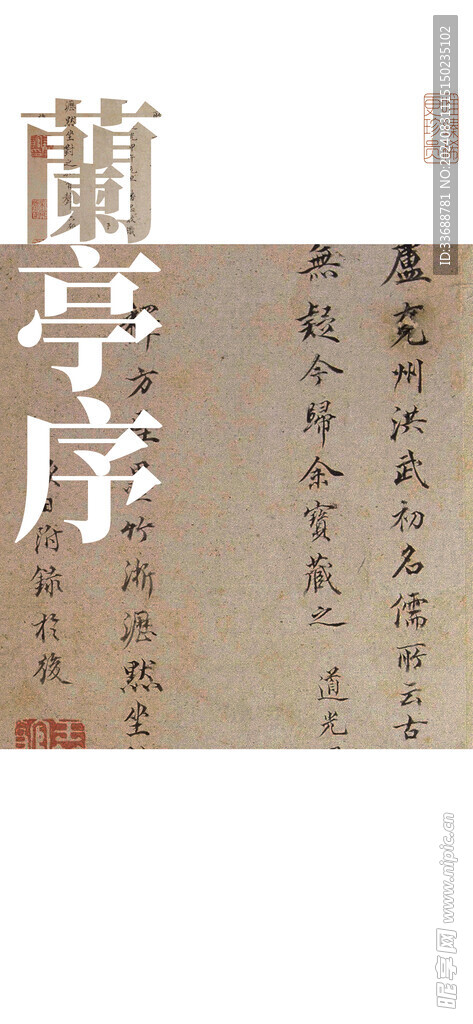 蘭亭序
盧兗州洪武初名儒所云古
無疑今歸余寶藏之 道光
方 竹淅瀝默坐
日附錄於後
NO:20240831115150235102
ID:33688781
昵享网 www.nipic.cn